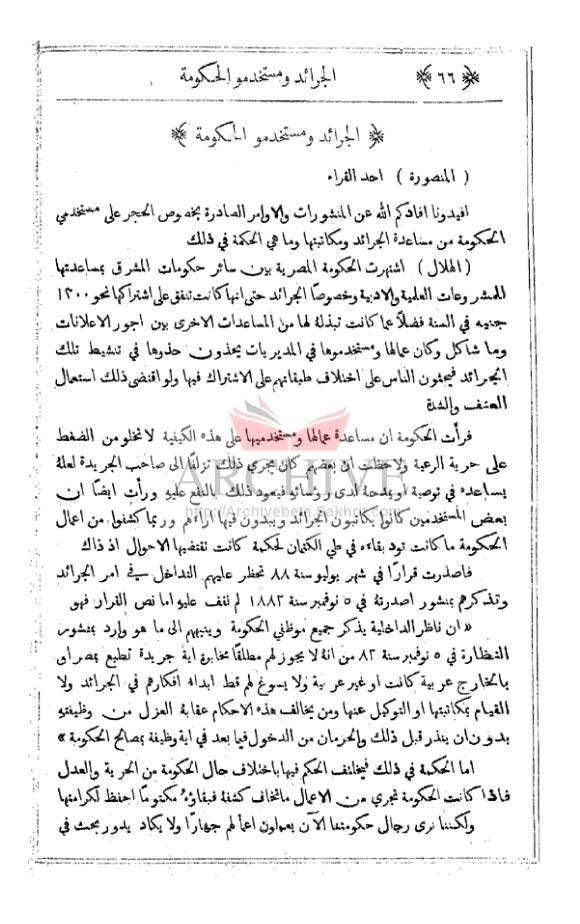 ﴿ ٦٦ ﴾ الجرائد ومستخدمو الحكومة
﴿ الجرائد ومستخدمو الحكومة ﴾
( المنصورة ) احد القراء
افيدونا افادكم الله عن المنشورات والاوامر الصادرة بخصوص الحجر على مستخدمي
الحكومة من مساعدة الجرائد ومكاتبتها وما هي الحكمة في ذلك
( الهلال ) اشتهرت الحكومة المصرية بين سائر حكومات المشرق بمساعدتها
للمشروعات العلمية والادبية وخصوصًا الجرائد حتى انها كانت تنفق على اشتراكها نحو ١٣٠٠
جنيه في السنة فضلاً عما كانت تبذلهُ لها من المساعدات الاخرى بين اجور الاعلانات
وما شاكل وكان عمالها ومستخدموها في المديريات يحذون حذوها في تنشيط تلك
الجرائد فيحثون الناس على اختلاف طبقاتهم على الاشتراك فيها ولو اقتضى ذلك استعمال
العنف والشدة
فرأت الحكومة ان مساعدة عمالها ومستخدميها على هذه الكيفية لا تخلو من الضغط
على حرية الرعية ولاحظت ان بعضهم كان يجري ذلك تزلفًا الى صاحب الجريدة لعلهُ
يساعده في توصية او يمدحهُ لدى روسائهِ فيعود ذلك بالنفع عليهِ ورأت ايضًا ان
بعض المستخدمين كانوا يكاتبون الجرائد ويبدون فيها اراءهم وربما كشفوا من اعمال
http://Archivebeta.Sakhrit.com
ARCHIVE
الحكومة ما كانت تود بقاءه في طي الكتمان لحكمة كانت تقتضيها الاحوال اذ ذاك
فاصدرت قرارًا في شهر يوليو سنة ٨٨ تحظر عليهم التداخل في امر الجرائد
وتذكرهم بمنشور اصدرتهُ في ٥ نوفمبر سنة ١٨٨٢ لم نقف عليهِ اما نص القرار فهو
« ان ناظر الداخلية يذكر جميع موظفي الحكومة وينبههم الى ما هو وارد بمنشور
النظارة في ٥ نوفمبر سنة ٨٢ من انهُ لا يجوز لهم مطلقًا مخابرة اية جريدة تطبع بمصر او
بالخارج عربية كانت او غير عربية ولا يسوغ لهم قط ابداء افكارهم في الجرائد ولا
القيام بمكاتبتها او التوكيل عنها ومن يخالف هذه الاحكام عقابهُ العزل من وظيفتهِ
بدون ان ينذر قبل ذلك والحرمان من الدخول فيما بعد في اية وظيفة بمصالح الحكومة »
اما الحكمة في ذلك فيختلف الحكم فيها باختلاف حال الحكومة من الحرية والعدل
فاذا كانت الحكومة تجري من الاعمال ما تخاف كشفهُ فبقاؤهُ مكتومًا احفظ لكرامتها
ولكننا نرى رجال حكومتنا الآن يعملون اعمالهم جهارًا ولا يكاد يدور بحث في